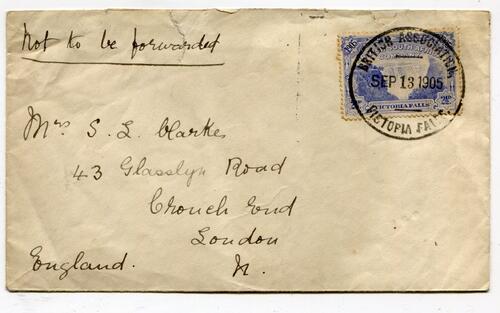 Not to be forwarded
BRITISH ASSOCIATION
SEP 13 1905
VICTORIA FALLS
SOUTH AFRICA
VICTORIA FALLS
Mrs S. L. Clarke
43 Glasslyn Road
Crouch End
London
England. N.